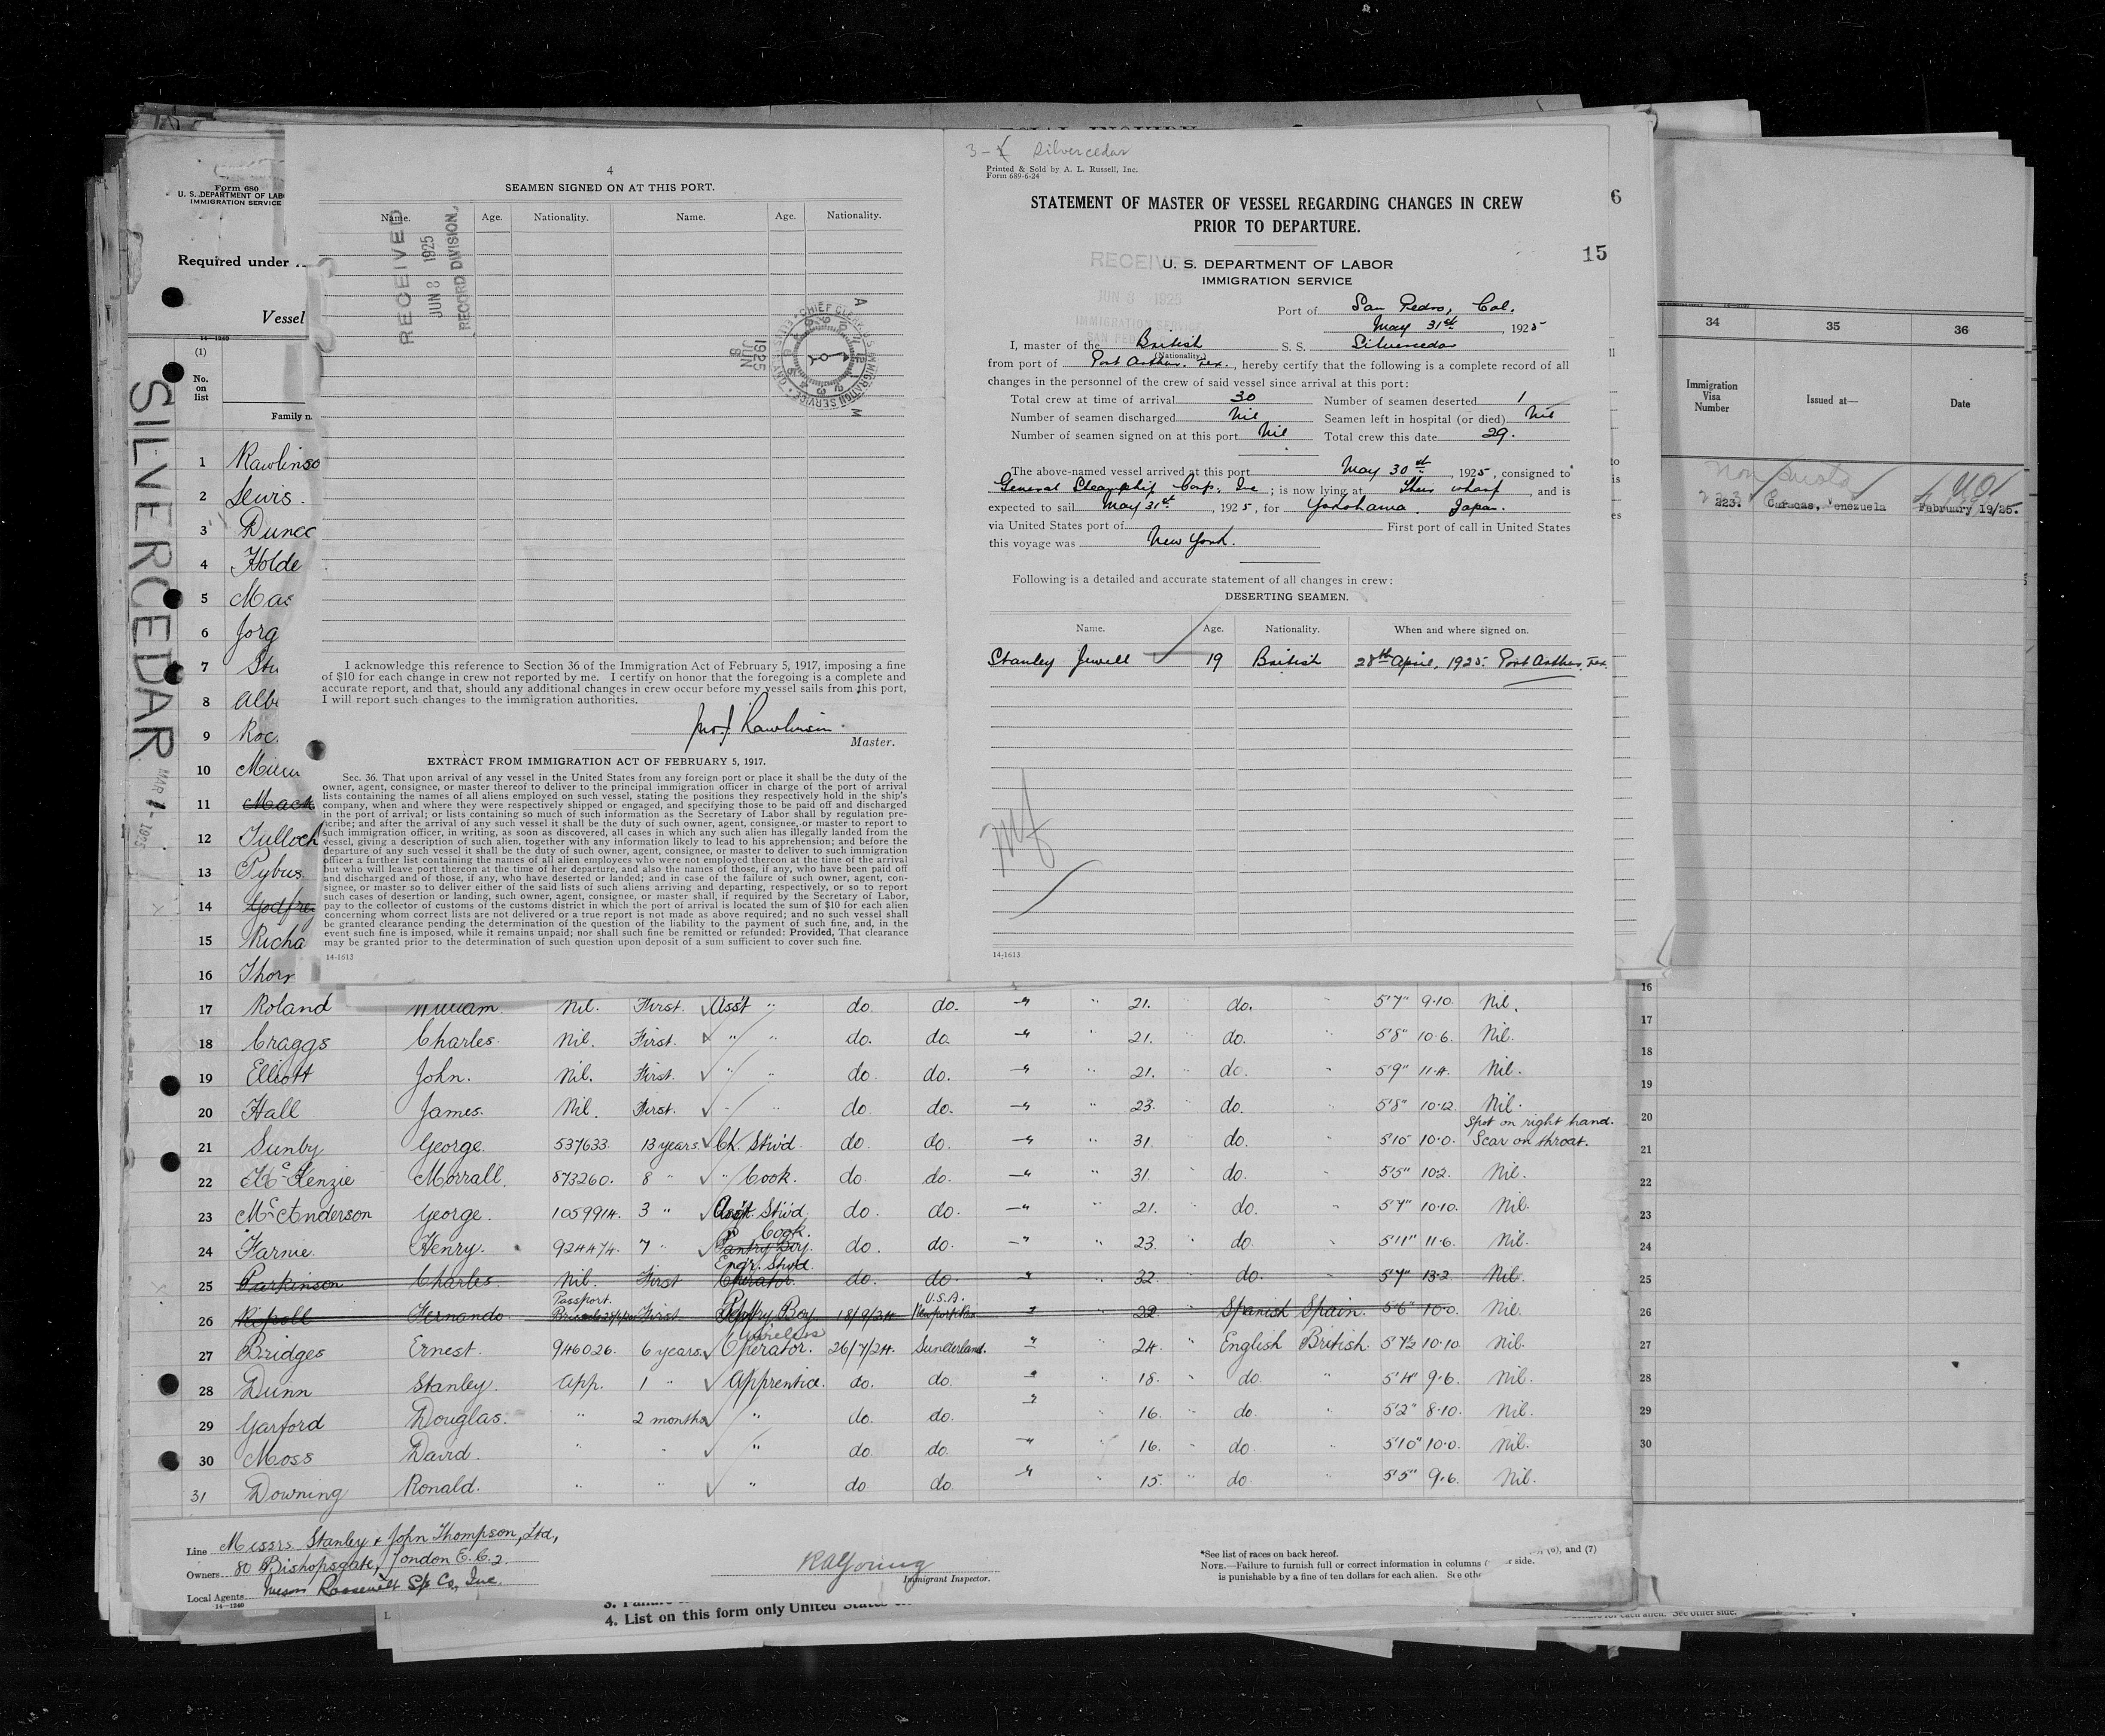 Form 680
U. S. DEPARTMENT OF LAB
IMMIGRATION SERVICE
Required under
Vessel
14—1240
(1)
No.
on
list
Family n
SILVERCEDAR
MAR 1 - 1925
1 Rawlinso
2 Lewis.
3 Dunc
4 Holde
5 Mas
6 Jorg
7 Stu
8 Albe
9 Roc
10
11 Mack
12 Tulloch
13 Pybus
14 Godfre
15 Richa
16 Thor
4
SEAMEN SIGNED ON AT THIS PORT.
Name. Age. Nationality. Name. Age. Nationality.
RECEIVED
JUN 8 1925
RECORD DIVISION,
CHIEF CLERK U.S. IMMIGRATION SERVICE
1925
JUN
8
A M
I acknowledge this reference to Section 36 of the Immigration Act of February 5, 1917, imposing a fine
of $10 for each change in crew not reported by me. I certify on honor that the foregoing is a complete and
accurate report, and that, should any additional changes in crew occur before my vessel sails from this port,
I will report such changes to the immigration authorities.
Jno. J. Rawlinson
Master.
EXTRACT FROM IMMIGRATION ACT OF FEBRUARY 5, 1917.
Sec. 36. That upon arrival of any vessel in the United States from any foreign port or place it shall be the duty of the
owner, agent, consignee, or master thereof to deliver to the principal immigration officer in charge of the port of arrival
lists containing the names of all aliens employed on such vessel, stating the positions they respectively hold in the ship's
company, when and where they were respectively shipped or engaged, and specifying those to be paid off and discharged
in the port of arrival; or lists containing so much of such information as the Secretary of Labor shall by regulation pre-
scribe; and after the arrival of any such vessel it shall be the duty of such owner, agent, consignee, or master to report to
such immigration officer, in writing, as soon as discovered, all cases in which any such alien has illegally landed from the
vessel, giving a description of such alien, together with any information likely to lead to his apprehension; and before the
departure of any such vessel it shall be the duty of such owner, agent, consignee, or master to deliver to such immigration
officer a further list containing the names of all alien employees who were not employed thereon at the time of the arrival
but who will leave port thereon at the time of her departure, and also the names of those, if any, who have been paid off
and discharged and of those, if any, who have deserted or landed; and in case of the failure of such owner, agent, con-
signee, or master so to deliver either of the said lists of such aliens arriving and departing, respectively, or so to report
such cases of desertion or landing, such owner, agent, consignee, or master shall, if required by the Secretary of Labor,
pay to the collector of customs of the customs district in which the port of arrival is located the sum of $10 for each alien
concerning whom correct lists are not delivered or a true report is not made as above required; and no such vessel shall
be granted clearance pending the determination of the question of the liability to the payment of such fine, and, in the
event such fine is imposed, while it remains unpaid; nor shall such fine be remitted or refunded: Provided, That clearance
may be granted prior to the determination of such question upon deposit of a sum sufficient to cover such fine.
14-1613
Silvercedar
Printed & Sold by A. L. Russell, Inc.
Form 689-6-24
STATEMENT OF MASTER OF VESSEL REGARDING CHANGES IN CREW
PRIOR TO DEPARTURE.
RECEIVED
JUN 3 1925
IMMIGRATION SERVICE
SAN PEDRO
U. S. DEPARTMENT OF LABOR
IMMIGRATION SERVICE
Port of San Pedro, Cal.
May 31st, 1925
I, master of the British S. S. Silvercedar
(Nationality.)
from port of Port Arthur. Tex., hereby certify that the following is a complete record of all
changes in the personnel of the crew of said vessel since arrival at this port:
Total crew at time of arrival 30 Number of seamen deserted 1
Number of seamen discharged Nil Seamen left in hospital (or died) Nil
Number of seamen signed on at this port Nil Total crew this date 29.
The above-named vessel arrived at this port May 30th, 1925, consigned to
General Steamship Corp. Inc; is now lying at Their wharf, and is
expected to sail May 31st, 1925, for Yokohama. Japan.
via United States port of First port of call in United States
this voyage was New York.
Following is a detailed and accurate statement of all changes in crew:
DESERTING SEAMEN.
Name. Age. Nationality. When and where signed on.
Stanley Jewell 19 British 28th April, 1925. Port Arthur, Tex.
14-1613
6
15
34 35 36
Immigration
Visa
Number
Issued at—
Date
223. Caracas, Venezuela February 19/25.
17 Roland William. Nil. First. Ass't " do. do. " " 21. " do. " 5'7" 9·10. Nil.
18 Craggs Charles. Nil. First. " " do. do. " " 21. do. " 5'8" 10·6. Nil.
19 Elliott John. Nil. First. " " do. do. " " 21. " do. " 5'9" 11·4. Nil.
20 Hall James. Nil. First. " " do. do. " " 23. do. " 5'8" 10·12. Nil.
Spot on right hand.
21 Sunby George. 537633. 13 years. Ch. Stwd. do. do. " " 31. do. " 5'10" 10·0. Scar on throat.
22 McKenzie Morrall. 873260. 8 " " Cook. do. do. " " 31. do. " 5'5" 10·2. Nil.
23 McAnderson George. 1059914. 3 " Ass't. Stwd. do. do. " " 21. do. " 5'7" 10·10. Nil.
Cook.
24 Farnie. Henry. 924474. 7 " Pantry Boy. do. do. " " 23. do. " 5'11" 11·6. Nil.
Engr. Stwd.
25 Parkinson Charles Nil. First Operator. do. do. " " 32. do. 5'7" 13·2. Nil
Passport. U.S.A.
26 Fernando First Pantry Boy 18/9/24 Newport News " " 22 Spanish Spain. 5'6" 10·0. Nil.
Wireless
27 Bridges Ernest. 946026. 6 years. Operator. 26/7/24. Sunderland. " " 24. " English British. 5'7½ 10·10. Nil.
28 Dunn Stanley. App. 1 " Apprentice. do. do. " " 18. " do. " 5'4" 9·6. Nil.
29 Garford Douglas. " 2 months " do. do. " " 16. " do. " 5'2" 8·10. Nil.
30 Moss David. " " " do. do. " " 16. " do. " 5'10" 10·0. Nil.
31 Downing Ronald. " " " do. do. " " 15. " do. " 5'5" 9·6. Nil.
16
17
18
19
20
21
22
23
24
25
26
27
28
29
30
Line Messrs. Stanley & John Thompson, Ltd.,
Owners 80 Bishopsgate, London E.C.2.
Local Agents Messrs Roosevelt S/S Co, Inc.
14—1240
RAYoung
Immigrant Inspector.
*See list of races on back hereof.
NOTE.—Failure to furnish full or correct information in columns (6), and (7)
is punishable by a fine of ten dollars for each alien. See othe r side.
4. List on this form only United States
each alien. See other side.